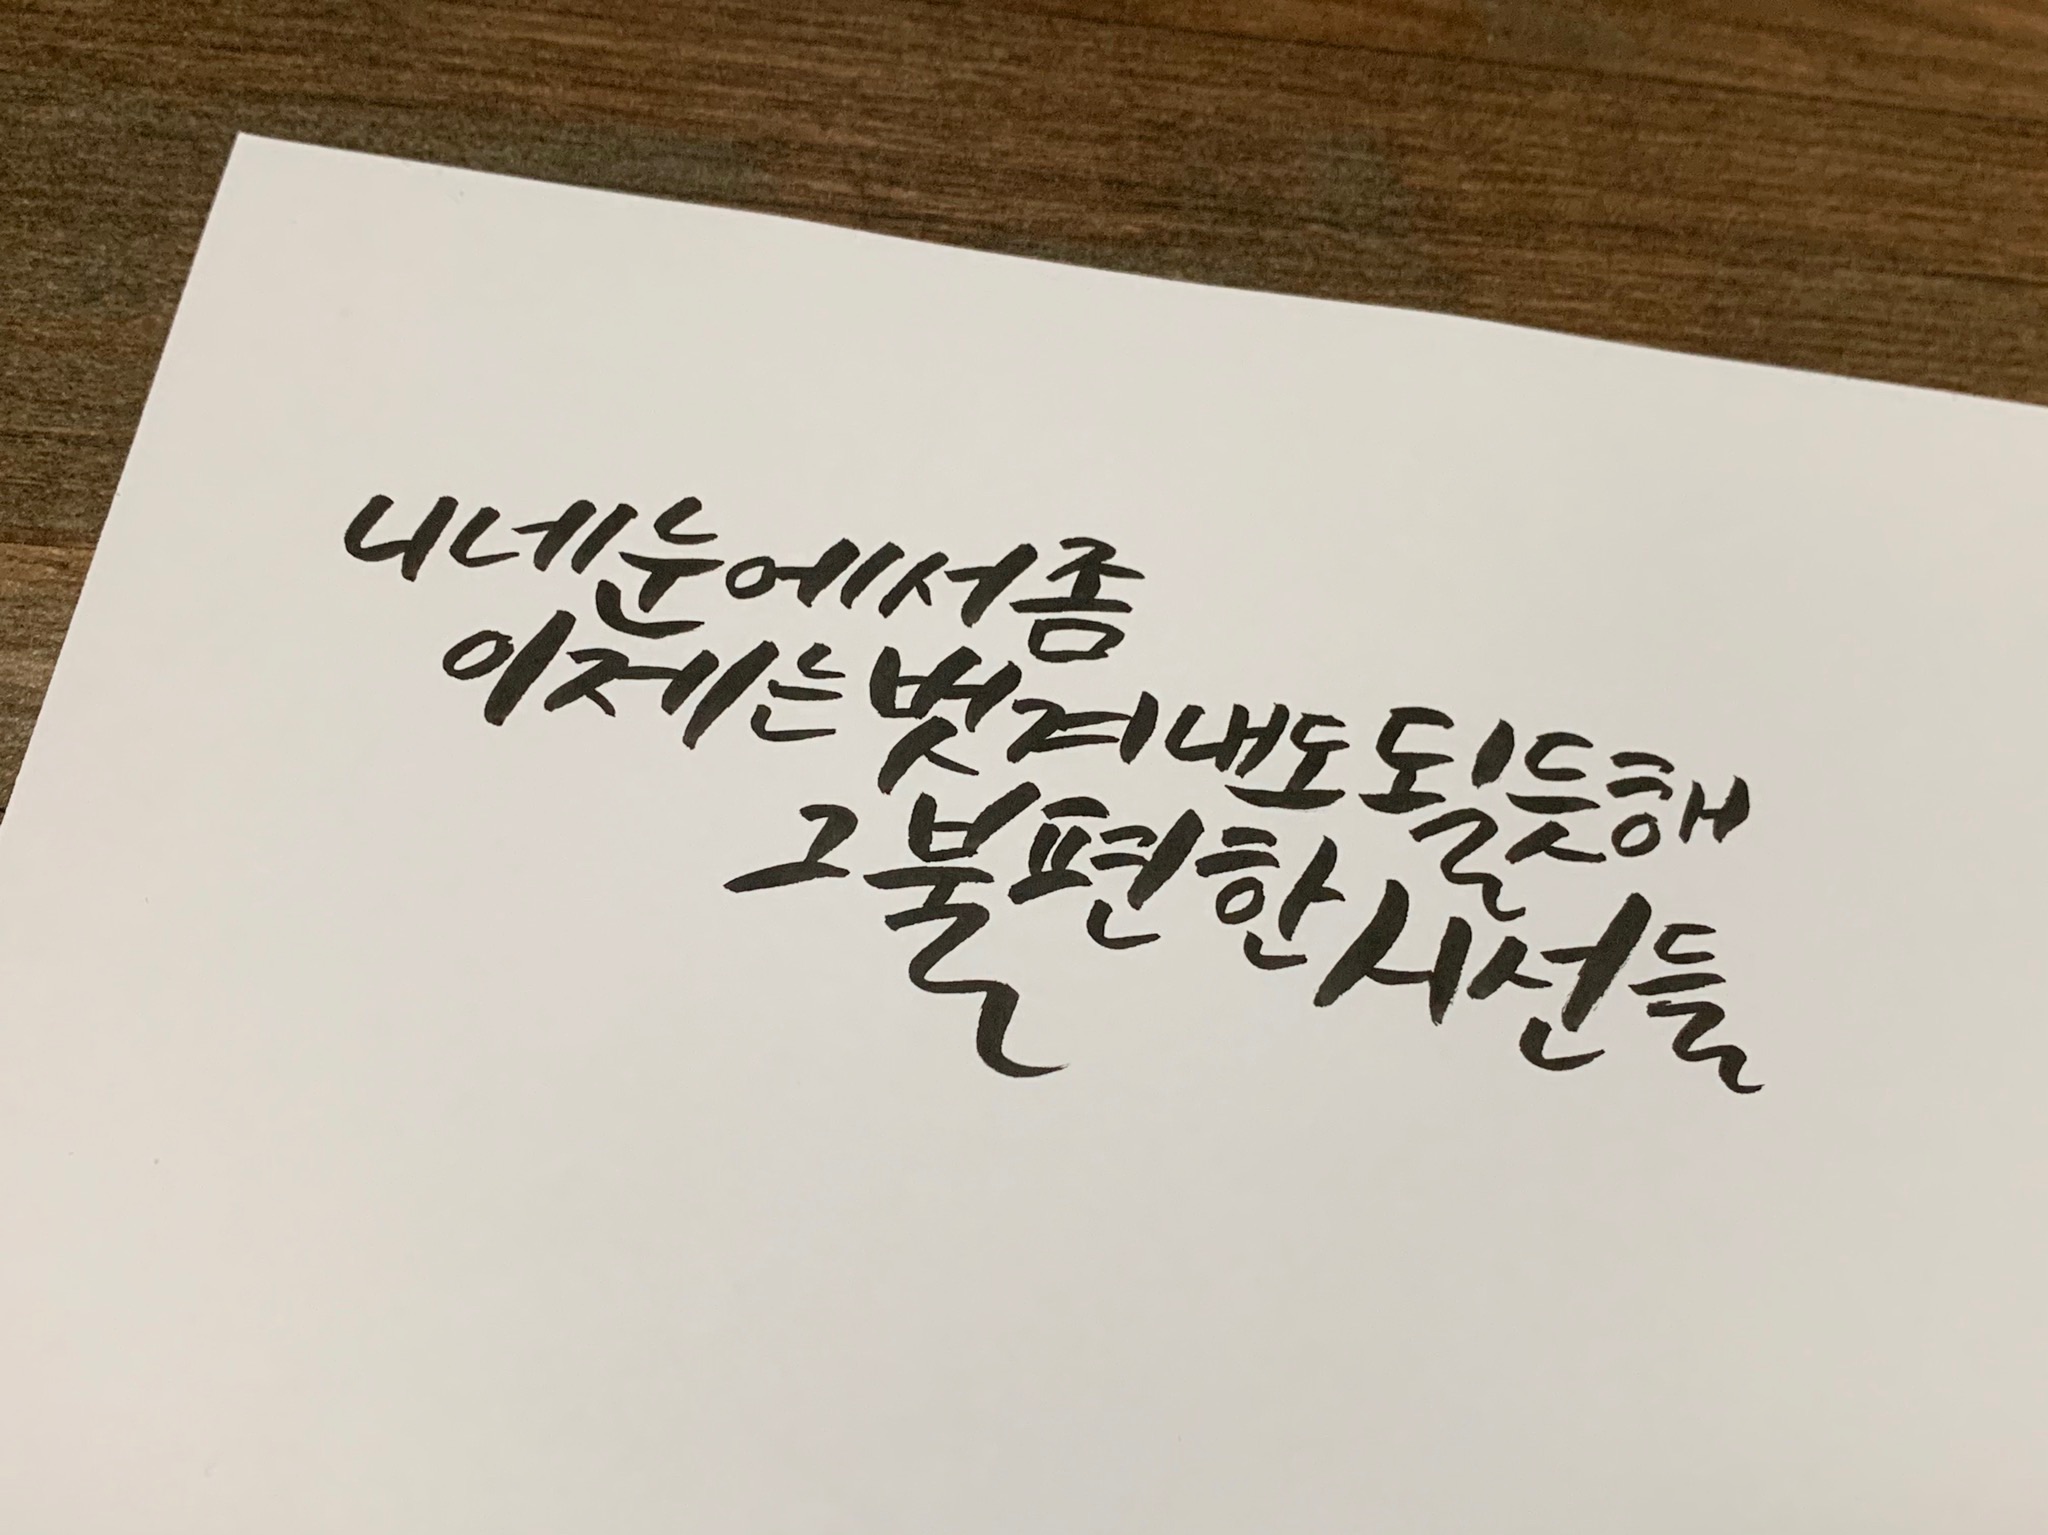 니네 눈에서 좀
이제는 벗겨내도 될 듯해
그 불편한 시선들